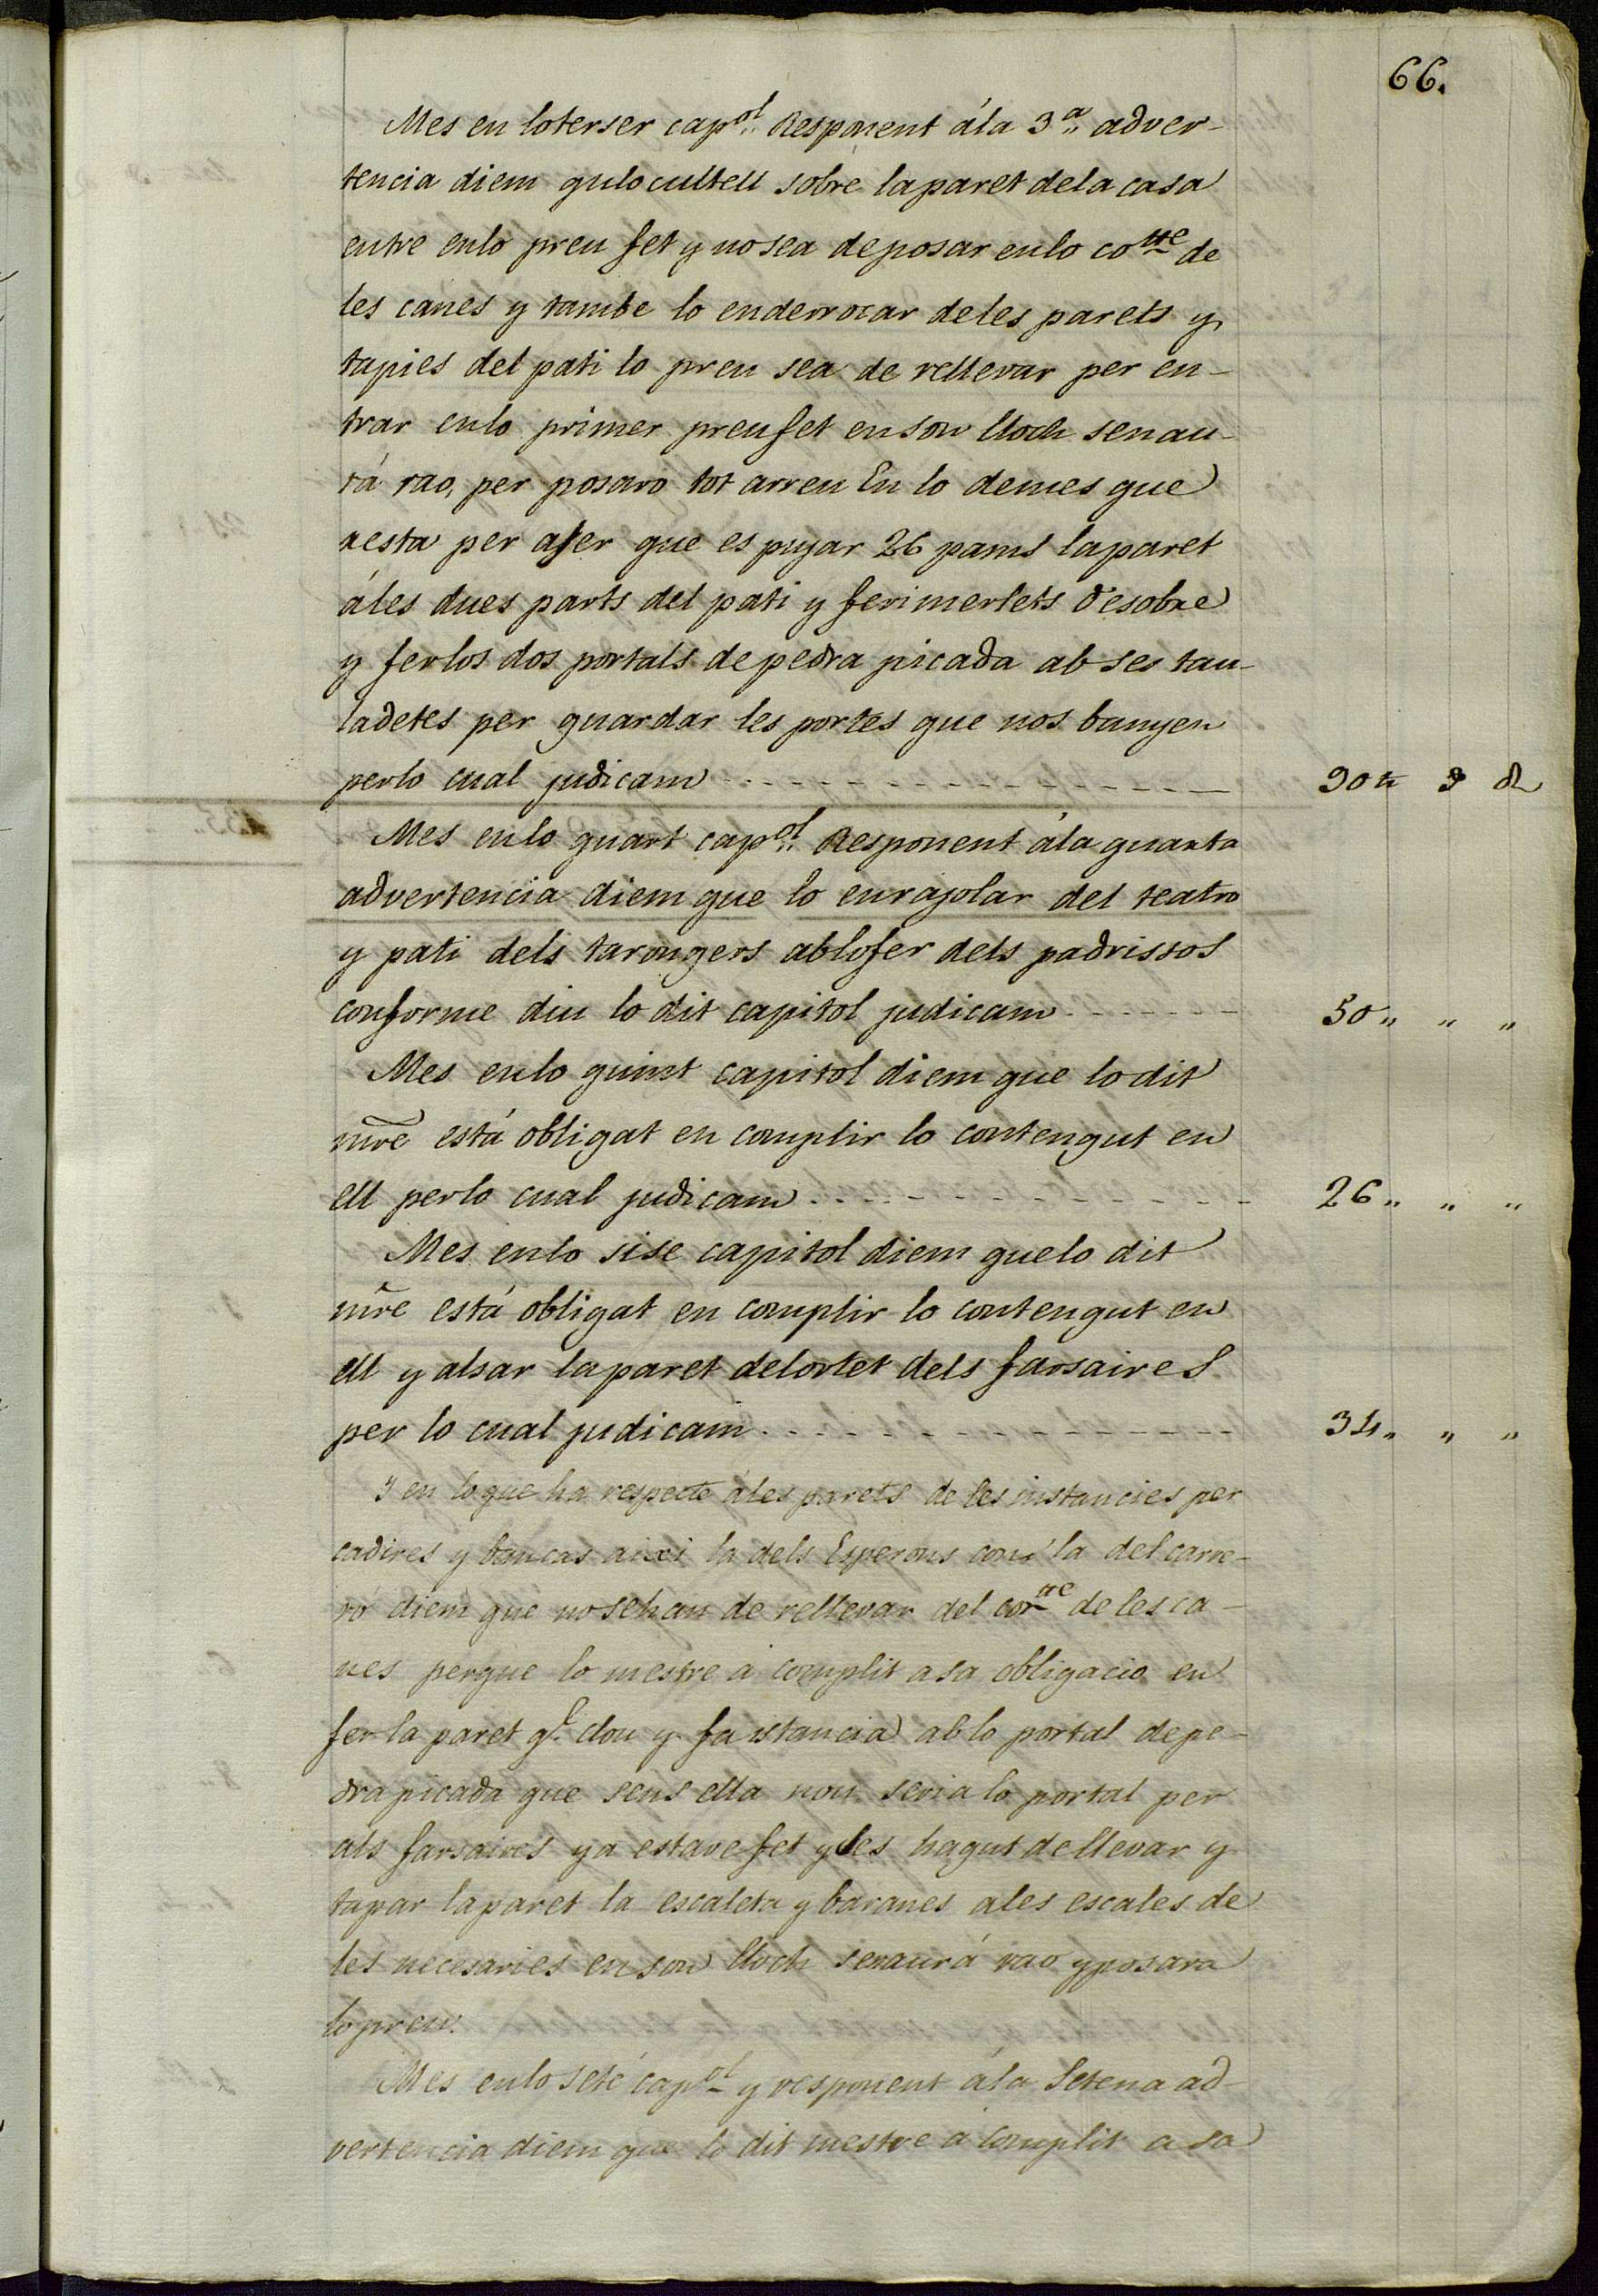 66.
Mes en loterser cap.ol Responent ála 3.a adver-
tencia diem qulocultell sobre laparet dela casa
entre enlo preu fet y nosea deposar enlo cotre de
les canes y tambe lo enderrocar deles parets y
tapies del pati lo preu sea de rellevar per en-
trar enlo primer preufet enson lloch senau-
rá rao, per posaro tot arreu En lo demes que
resta per afer que es pujar 26 pams laparet
áles dues parts del pati y ferimerlets desobre
y ferlos dos portals depedra picada ab ses tau-
ladetes per guardar les portes que nos banyen
perlo cual judicam 90 ll s d
Mes enlo quart cap.ol Responent ála quarta
advertencia diem que lo enrajolar del teatro
y pati dels tarongers ablofer dels padrissos
conforme diu lo dit capitol judicam 50 „ „ „
Mes enlo quint capitol diem que lo dit
mre está obligat en complir lo contengut en
ell perlo cual judicam 26 „ „ „
Mes enlo sise capitol diem quelo dit
mre está obligat en complir lo contengut en
ell y alsar laparet delortet dels farsaires
per lo cual judicam 34 „ „ „
Y en loque ha respecte áles parets de les instancies per
cadires y bancas aixi la dels Esperons com la delcarre-
ró diem que nosehan de rellevar del cortre de les ca-
nes perque lo mestre á complit asa obligacio en
fer la paret q.e clou y fa istancia ablo portal depe-
drapicada que sens ella nou seria lo portal per
als farsaires ya estave fet yles hagut dellevar y
tapar laparet la escaleta y baranes ales escales de
les necesaries enson lloch senaurá rao yposara
lopreu.
Mes enlo seté cap.ol y responent ála Setena ad-
vertencia diem que lo dit mestre á complit a sa